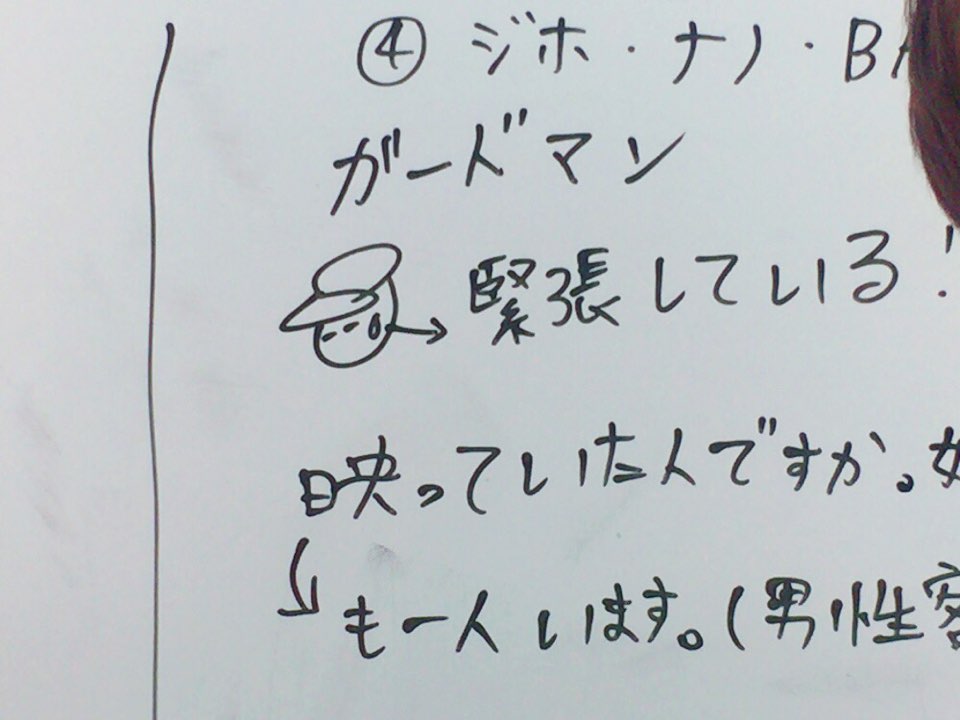 ④ ジホ・ナノ・B
ガードマン
緊張している!
映っていた人ですか。
も一人います。(男性客